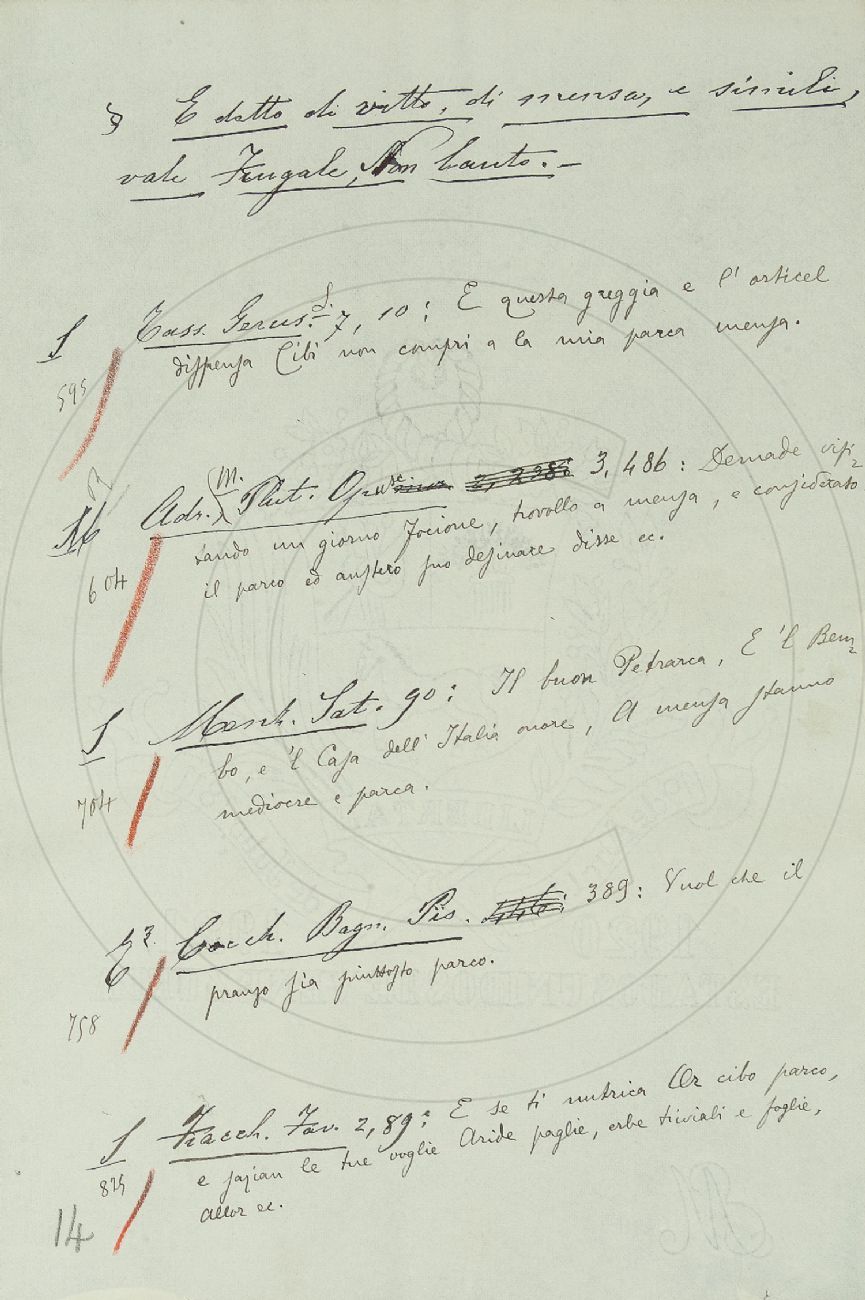 § E detto di vitto, di mensa, e simili,
vale Frugale, Non Lauto. –
S Tass. Gerus. 7, 10: E questa greggia e l'orticel
595 dispensa Cibi non compri a la mia parca mensa.
M Adr. M. Plut. Opusc. 3, 486: Demade visi=
604 tando un giorno Focione, trovollo a mensa, e considerato
il parco ed austero suo desinare disse ec.
S Menz. Sat. 90: Il buon Petrarca, E 'l Bem=
704 bo, e 'l Casa dell'Italia onore, A mensa stanno
mediocre e parca.
E³ Cocch. Bagn. Pis. 389: Vuol che il
758 pranzo sia piuttosto parco.
S Fiacch. Fav. 2, 89: E se ti nutrica Or cibo parco,
825 e sazian le tue voglie Aride paglie, erbe triviali e foglie,
Allor ec.
14